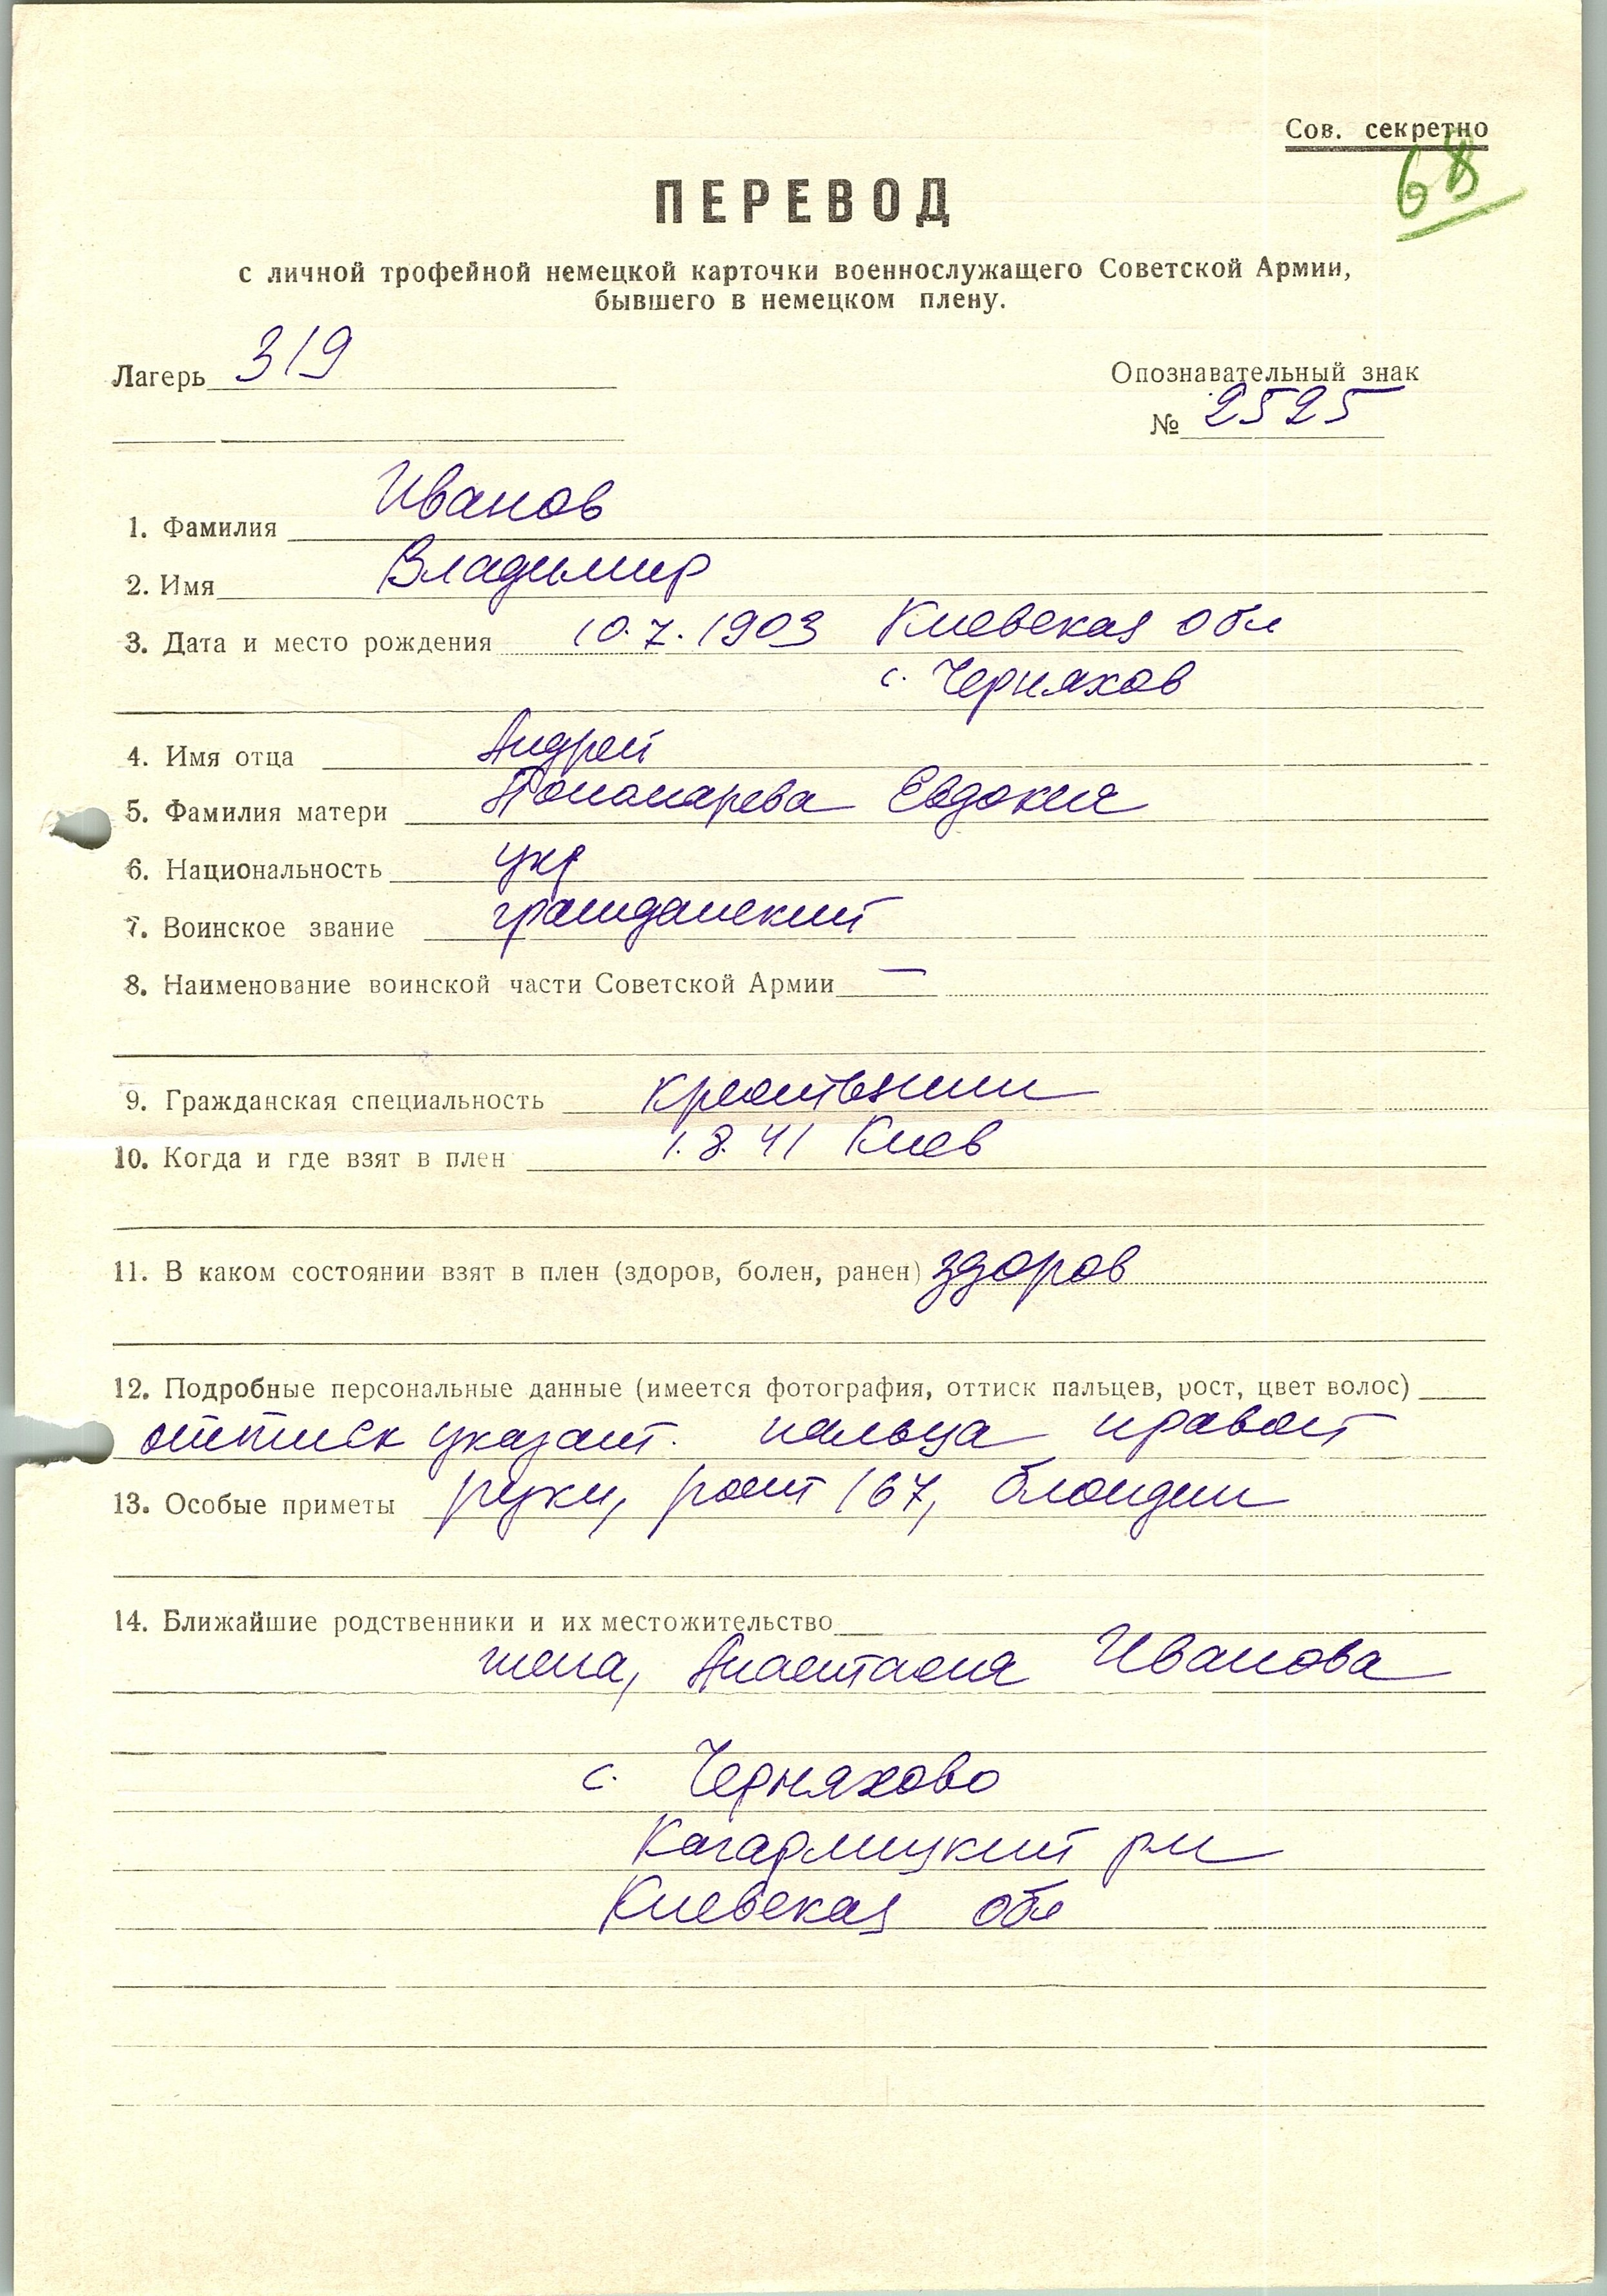 Сов. секретно
68
ПЕРЕВОД
с личной трофейной немецкой карточки военнослужащего Советской Армии,
бывшего в немецком плену.
Лагерь 319
Опознавательный знак
№ 2525
1. Фамилия Иванов
2. Имя Владимир
3. Дата и место рождения 10.7.1903 Киевская обл
с. Черняхов
4. Имя отца Андрей
5. Фамилия матери Пономарева Евдокия
6. Национальность укр
7. Воинское звание гражданский
8. Наименование воинской части Советской Армии —
9. Гражданская специальность крестьянин
10. Когда и где взят в плен 1.8.41 Киев
11. В каком состоянии взят в плен (здоров, болен, ранен) здоров
12. Подробные персональные данные (имеется фотография, оттиск пальцев, рост, цвет волос)
оттиск указат. пальца правой
13. Особые приметы руки, рост 167, блондин
14. Ближайшие родственники и их местожительство
жена, Анастасия Иванова
с. Черняхово
Кагарлицкий рн
Киевская обл